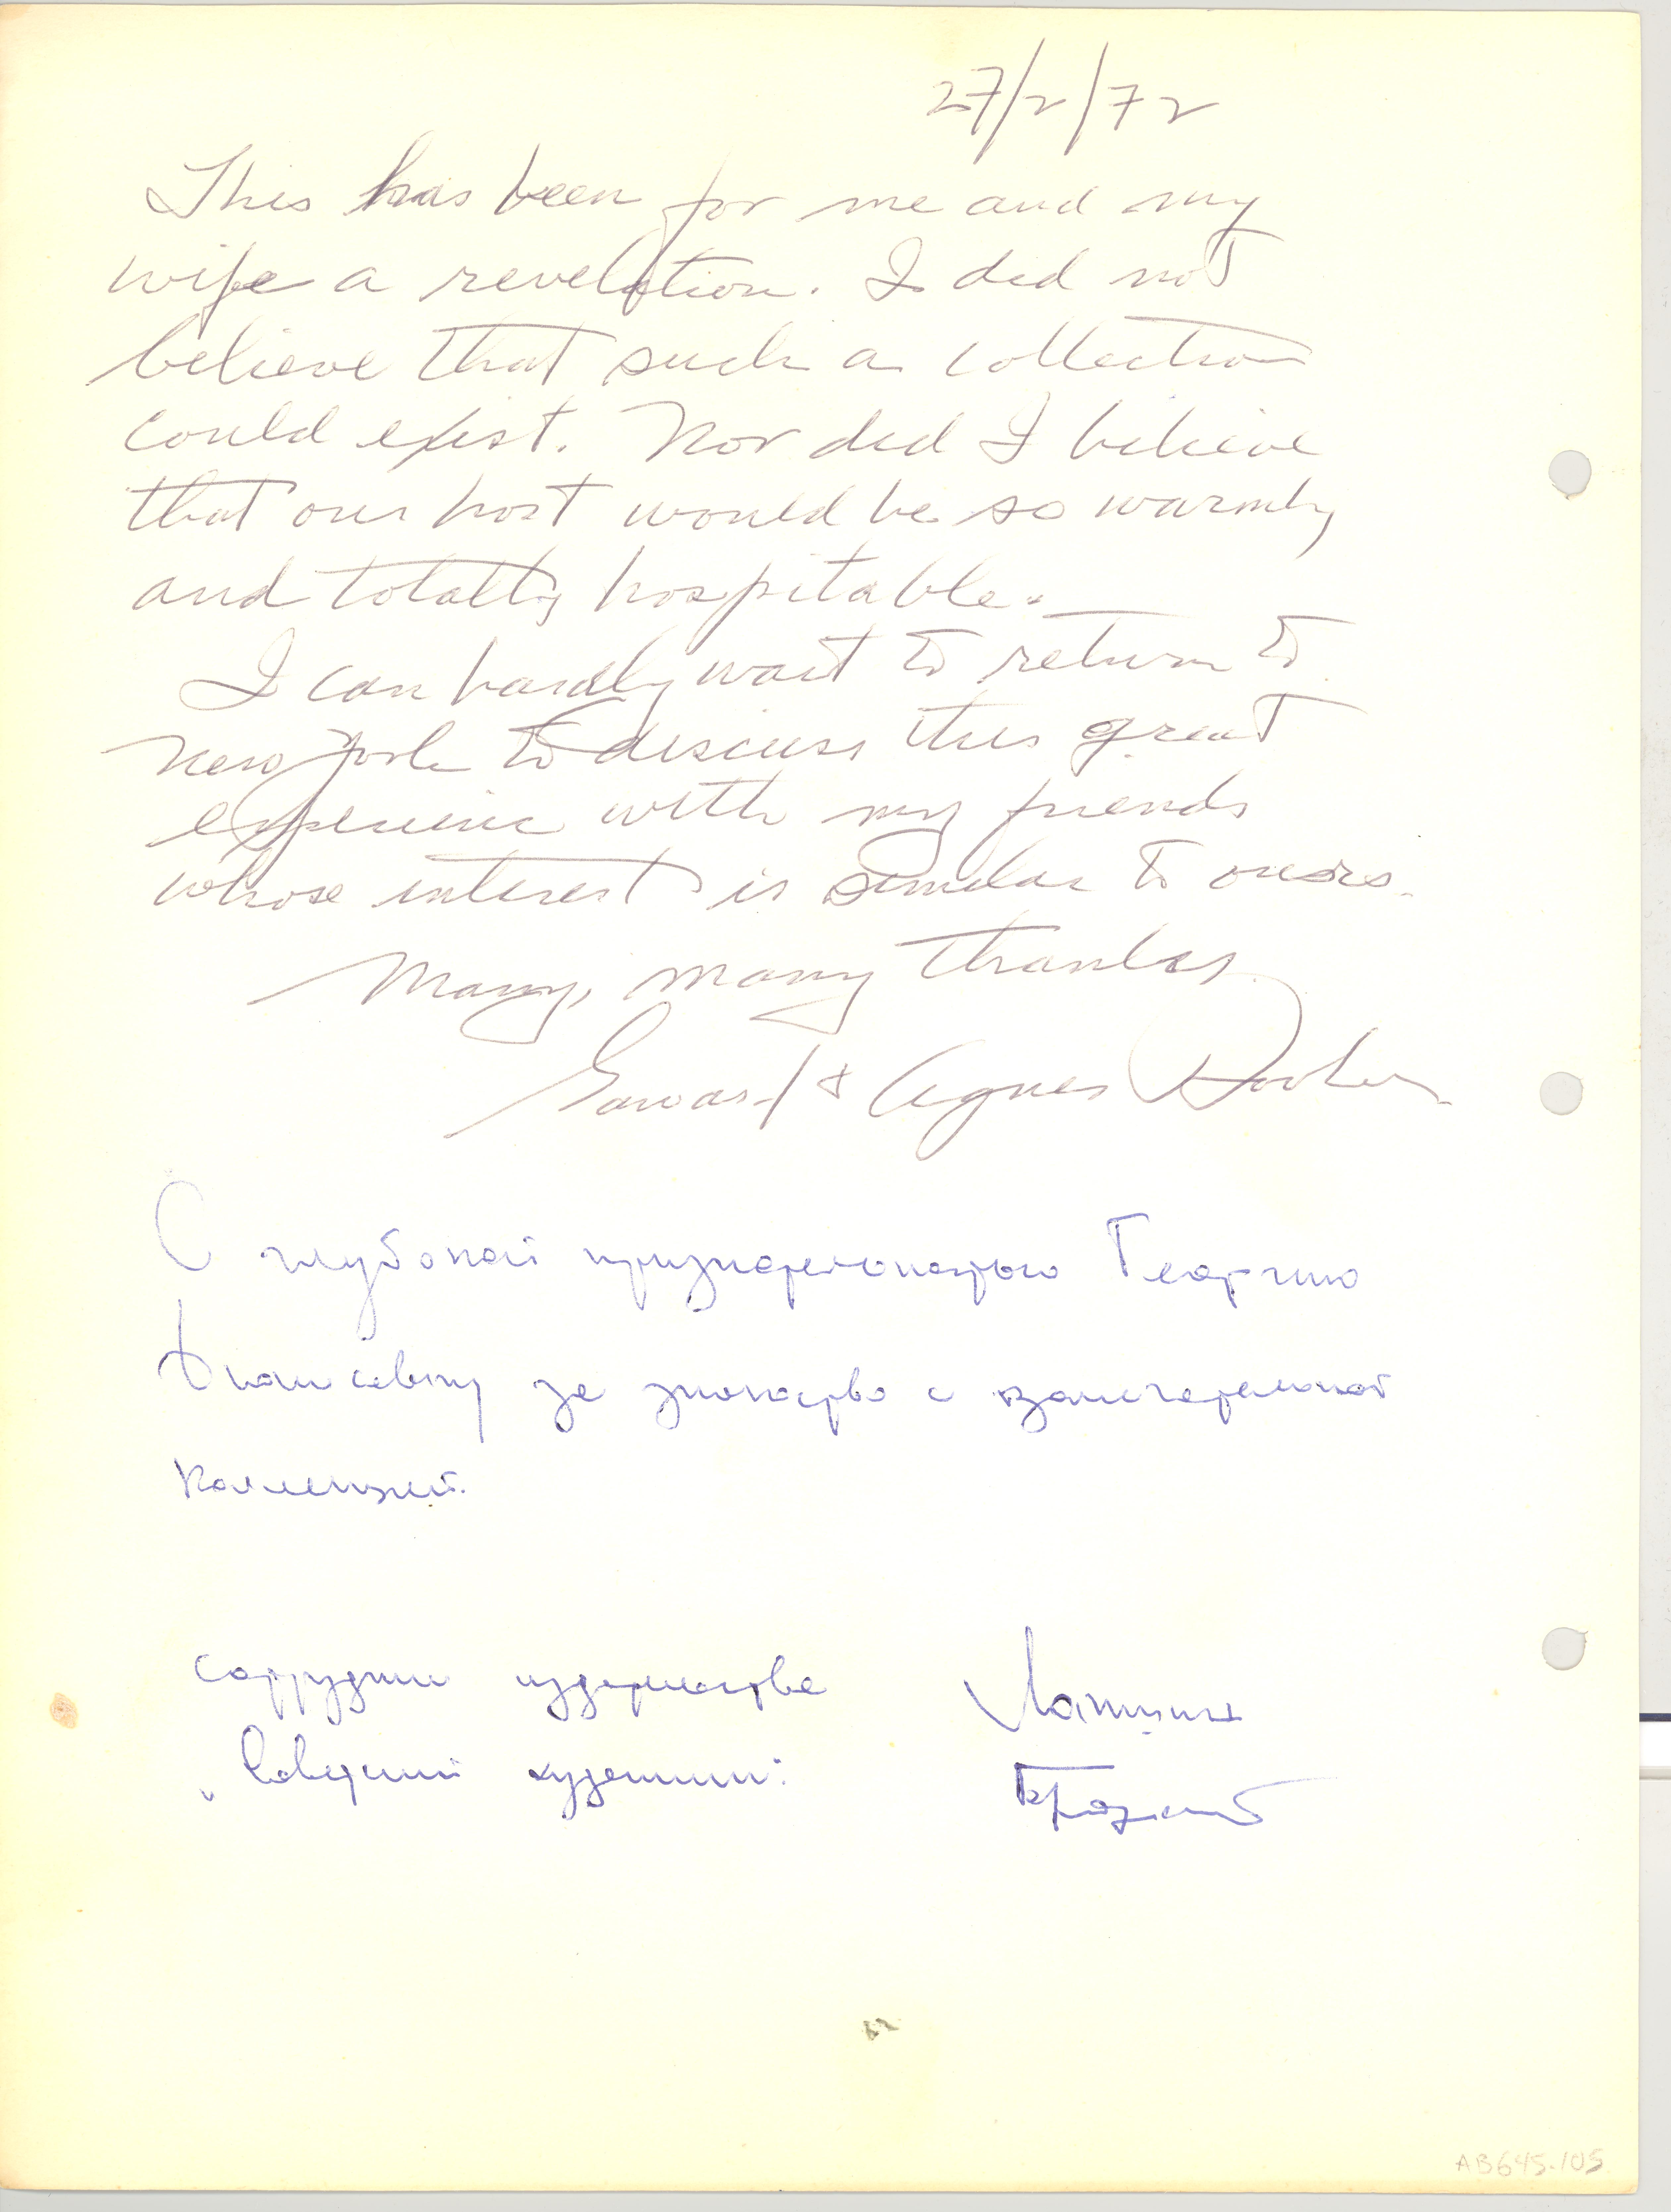 27/2/72
This has been for me and my
wife a revelation. I did not
believe that such a collection
could exist. Nor did I believe
that our host would be so warmly
and totally hospitable.
I can hardly wait to return to
New York to discuss this great
experience with my friends
whose interest is similar to ours.
Many, many thanks
& Agnes
С глубокой признательностью Георгию
за знакомство с замечательной
коллекцией.
сотрудники издательства
"Советский художник"
AB645.105